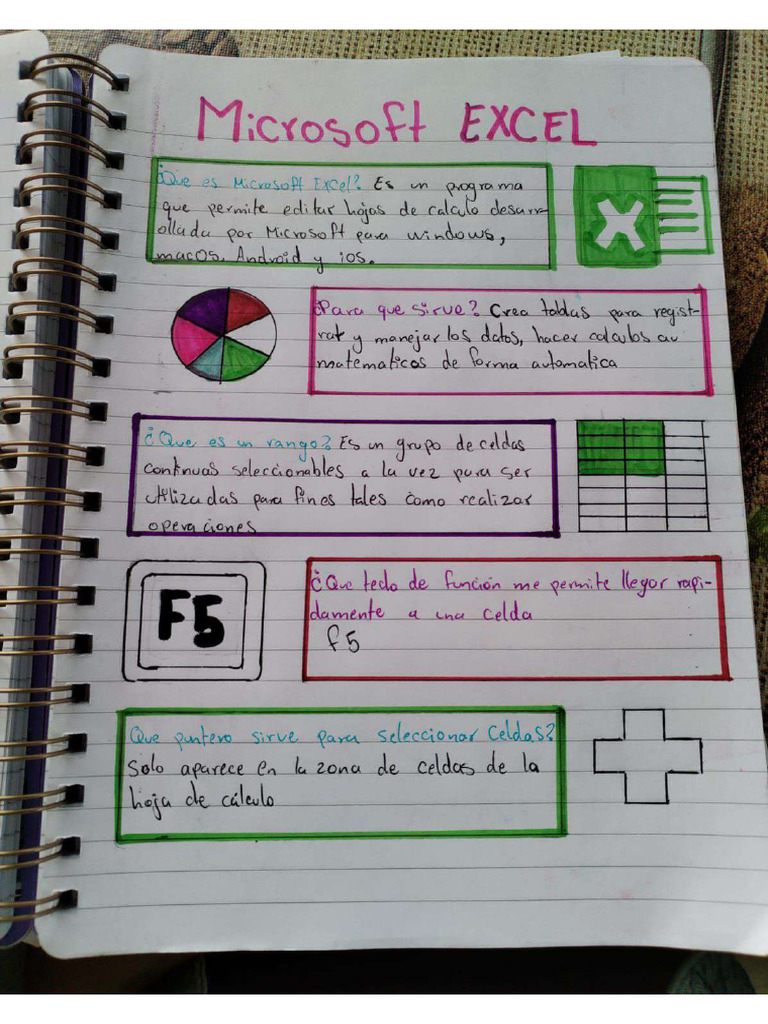 Microsoft EXCEL
¿Que es Microsoft Excel? Es un programa
que permite editar hojas de calculo desarr-
ollada por Microsoft para windows,
macOS. Android y ios.
X
¿Para que sirve? Crea tablas para regist-
rar y manejar los datos, hacer calculos au
matematicos de forma automatica
¿Que es un rango? Es un grupo de celdas
continuas seleccionables a la vez para ser
utilizadas para fines tales como realizar
operaciones
F5
¿Que tecla de función me permite llegar rapi-
damente a una celda
f5
Que puntero sirve para seleccionar Celdas?
Solo aparece en la zona de celdas de la
hoja de cálculo